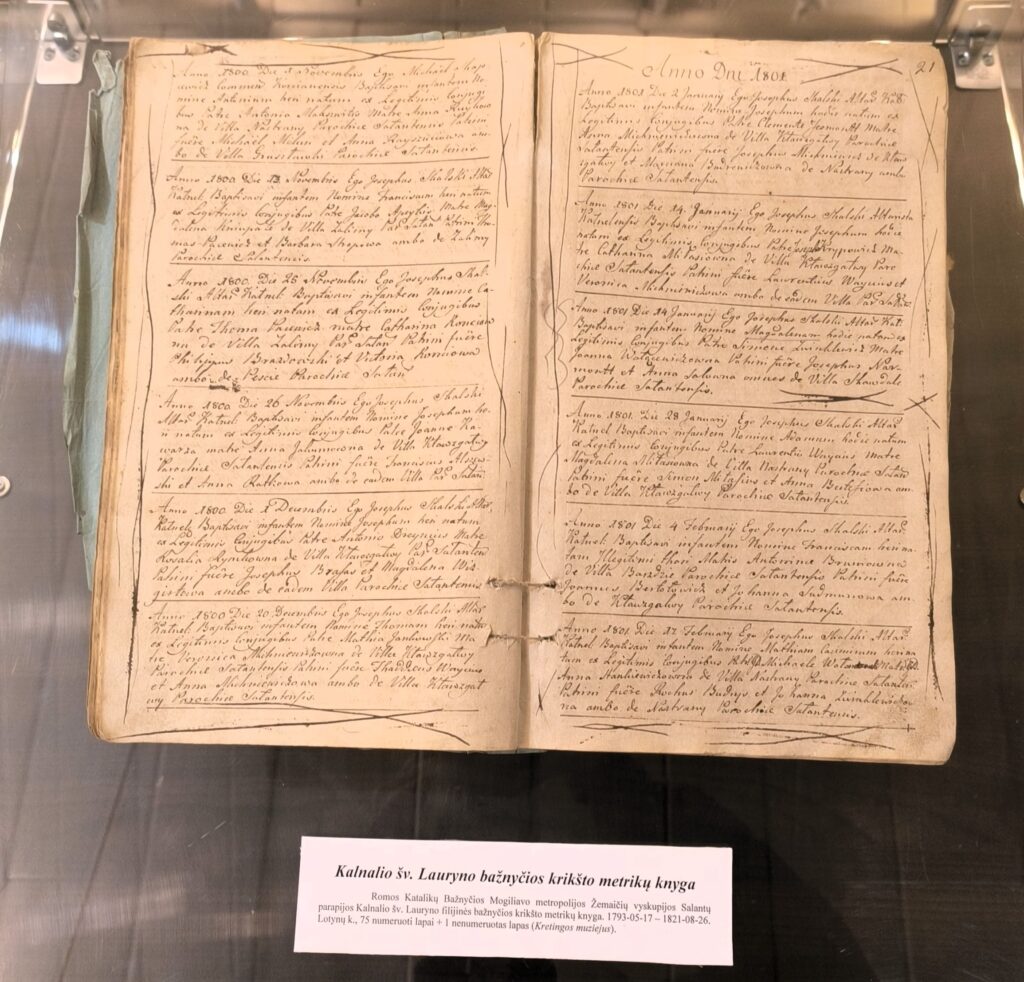 Anno 1800 Die 1 Novembris Ego Michael
Commen. Baptisavi infantem No
mine Antonium heri natum ex Legitimis Conjugi
bus Patre Antonio Matre Anna
na de Villa Nastrany Parochiæ Salantensis Patrini
fuêre Michael et Anna am
bo de Villa Parochiæ Salantensis.
Anno 1800 Die 13 Novembris Ego Josephus Skalski Altar.
Katnel. Baptisavi infantem Nominis Franciscum heri natum
ex Legitimis Conjugibus Patre Jacobo Matre Mag
dalena de Villa Zalimy Par. Salan. Patrini Tho
mas et Barbara ambo de Zalimy
Parochiæ Salantensis.
Anno 1800. Die 25 Novembris Ego Josephus Skal
ski Altar. Katnel. Baptisavi infantem Nomine Ca
tharinam heri natam ex Legitimis Conjugibus
Patre Thoma matre Catharina
na de Villa Zalimy Par. Salan. Patrini fuêre
Philippus Brazdowski et Victoria
ambo de Pescie Parochiæ Salan.
Anno 1800. Die 26 Novembris Ego Josephus Skalski
Altar. Katnel. Baptisavi infantem Nomine Josephum ho
ri natum ex Legitimis Conjugibus Patre Joanne Ka
warza matre Anna de Villa Ktawzgalwy
Parochiæ Salantensis Patrini fuêre Franciscus
ski et Anna Ratkowa ambo de eadem Villa Par. Salan.
Anno 1800. Die 1 Decembris Ego Josephus Skalski Altar.
Katnel. Baptisavi infantem Nomine Josephum heri natum
ex Legitimis Conjugibus Patre Antonio Matre
Rosalia de Villa Ktawzgalwy Par. Salanten.
Patrini fuêre Josephus Brasas et Magdalena
ambo de eadem Villa Parochiæ Salantensis.
Anno 1800 Die 20 Decembris Ego Josephus Skalski Altar.
Katnel. Baptisavi infantem Nomine Thomam heri natum
ex Legitimis Conjugibus Patre Mathia Jankowski Ma
tre Veronica Michniewiczowna de Villa Ktawzgalwy
Parochiæ Salantensis Patrini fuêre Thaddeus Waycius
et Anna Michniewiczowa ambo de Villa Ktawzgal
wy Parochiæ Salantensis.
21
Anno Dni 1801
Anno 1801 Die 2 January Ego Josephus Skalski Altar. Kat.
Baptisavi infantem Nomine Josephum hodie natum ex
Legitimis Conjugibus Patre Clemente Matre
Anna de Villa Ktawzgalwy Parochiæ
Salantensis Patrini fuêre Josephus Michniewicz de Ktaw
zgalwy et Marciana de Nastrany ambo
Parochiæ Salantensis.
Anno 1801 Die 14. Januarij Ego Josephus Skalski Altarista
Katnelensis Baptisavi infantem Nomine Josephum hodie
natum ex Legitimis Conjugibus Patre Josepho Ma
tre Catharina de Villa Ktawzgalwy Paro
chiæ Salantensis Patrini fuêre Laurentius Waycius et
Veronica Michniewiczowa ambo de eadem Villa Par. Salan.
Anno 1801 Die 14 Januarij Ego Josephus Skalski Altar. Kat.
Baptisavi infantem Nomine Magdalenam hodie natam ex
Legitimis Conjugibus Patre Simone Matre
Joanna Patrini fuêre Josephus Nar
montt et Anna omnes de Villa
Parochiæ Salantensis.
Anno 1801. Die 28 Januarij Ego Josephus Skalski Altar.
Katnel. Baptisavi infantem Nomine Adamum hodie natum
ex Legitimis Conjugibus Patre Laurentio Waycius Matre
Magdalena de Villa Nastrany Parochiæ Salan.
Patrini fuêre Simon et Anna am
bo de Villa Ktawzgalwy Parochiæ Salantensis.
Anno 1801 Die 4 Februarij Ego Josephus Skalski Altar.
Katnel. Baptisavi infantem Nomine Franciscam heri na
tam Illegitimi thori Matris Antonina
de Villa Parochiæ Salantensis Patrini fuêre
Joannes et Johanna am
bo de Ktawzgalwy Parochiæ Salantensis.
Anno 1801. Die 17 Februarij Ego Josephus Skalski Altar.
Katnel. Baptisavi infantem Nomine Mathiam Casimirum heri na
tum ex Legitimis Conjugibus Patre Michaele Matre
Anna de Villa Nastrany Parochiæ Salanten.
Patrini fuêre Rochus Budrys et Johanna
na ambo de Nastrany Parochiæ Salantensis.
Kalnalio šv. Lauryno bažnyčios krikšto metrikų knyga
Romos Katalikų Bažnyčios Mogiliavo metropolijos Žemaičių vyskupijos Salantų
parapijos Kalnalio šv. Lauryno filijinės bažnyčios krikšto metrikų knyga. 1793-05-17 – 1821-08-26.
Lotynų k., 75 numeruoti lapai + 1 nenumeruotas lapas (Kretingos muziejus).